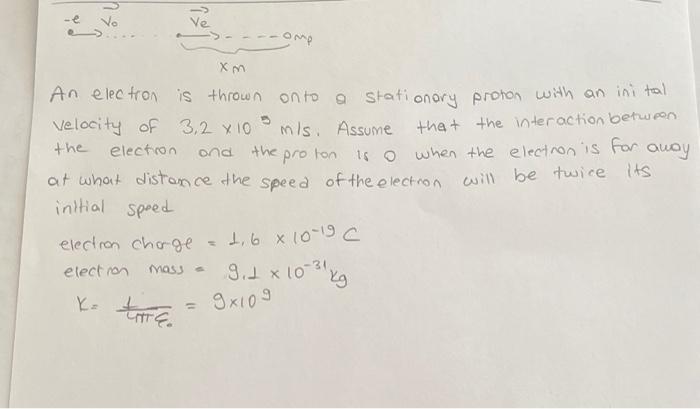 -e V₀ Ve
mp
x m
An electron is thrown onto a stationary proton with an inital
velocity of 3,2 x 10⁵ m/s. Assume that the interaction between
the electron and the proton is 0 when the electron is far away
at what distance the speed of the electron will be twice its
initial speed
electron charge = 1,6 x 10⁻¹⁹ C
electron mass = 9.1 x 10⁻³¹ kg
K = 1/4πε₀ = 9x10⁹